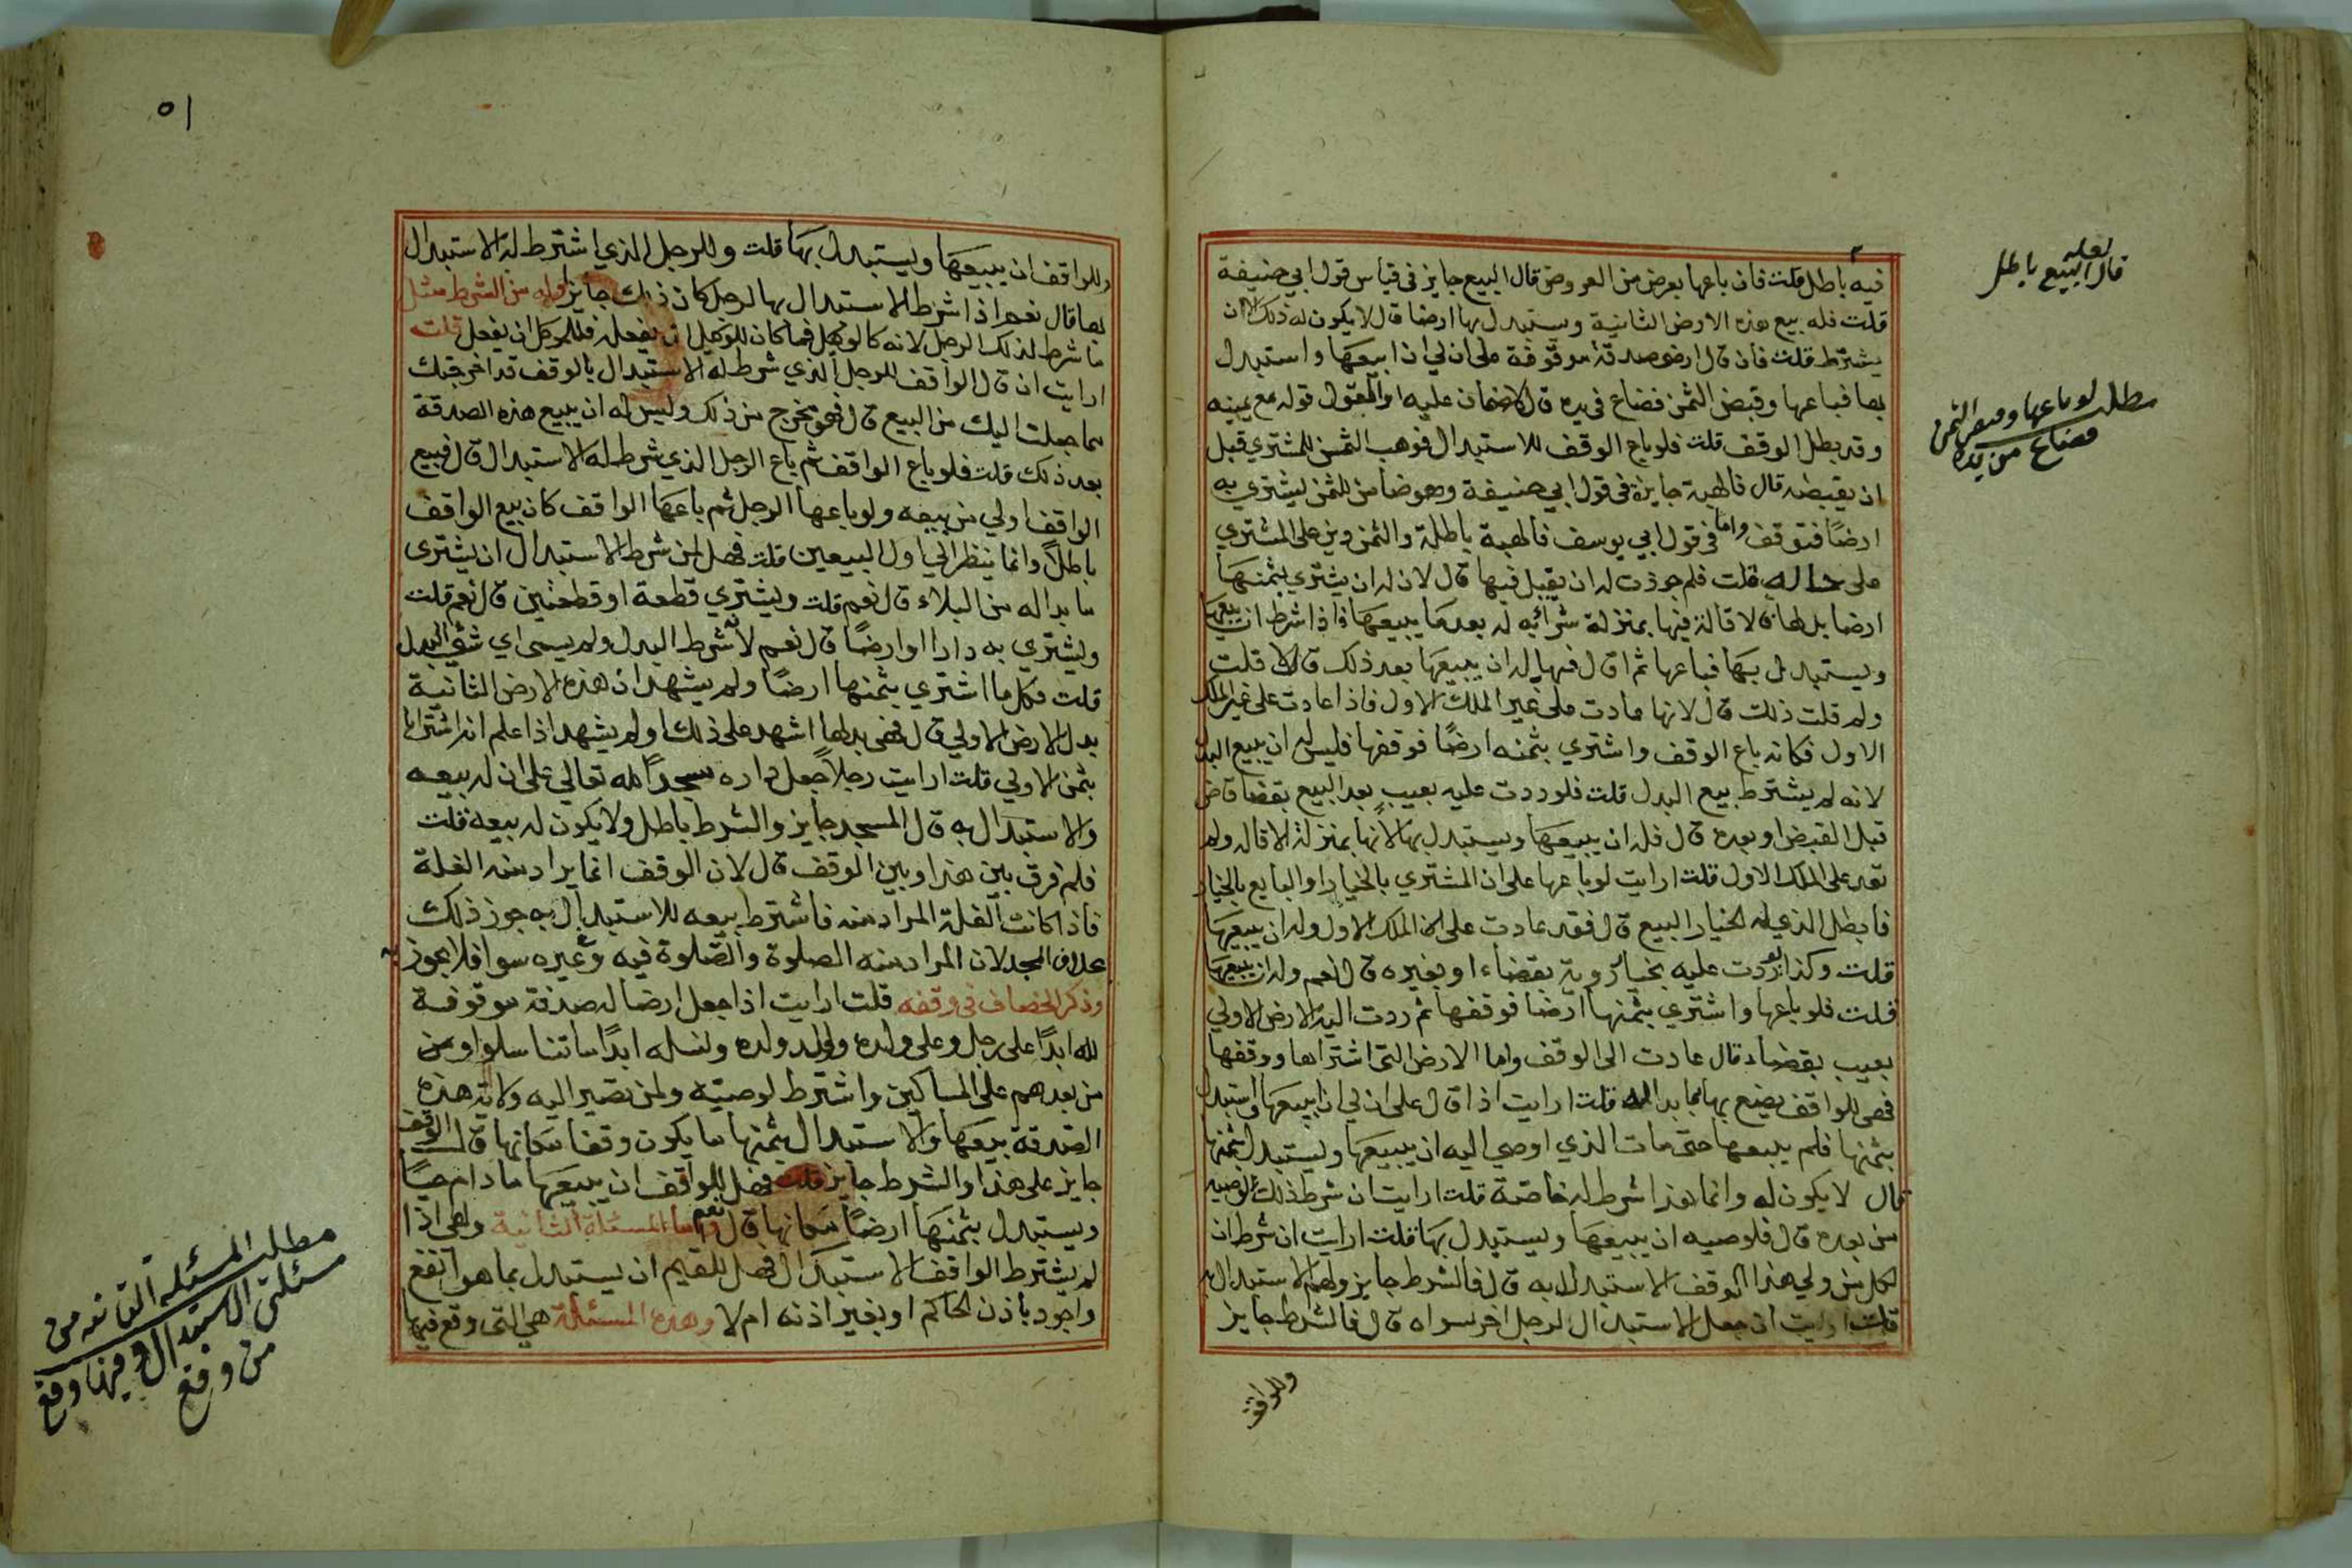 فيه باطل قلت فان باعها بعرض من العروض قال البيع جايز في قياس قول ابي حنيفة
قلت فله بيع هذه الارض الثانية ويستبدل بها ارضا قال لا يكون له ذلك الا ان
يشترط قلت فان قال ارضي صدقة موقوفة على ان لي ان ابيعها واستبدل
بها فباعها وقبض الثمن فضاع في يده قال لا ضمان عليه والقول قوله مع يمينه
وقد بطل الوقف قلت فلو باع الوقف للاستبدال فوهب الثمن للمشتري قبل
ان يقبضه قال فالهبة جايزة في قول ابي حنيفة وهو ضامن للثمن ليشتري به
ارضًا فتوقف واما في قول ابي يوسف فالهبة باطلة والثمن دين على المشتري
على حاله قلت فلم جوزت له ان يقبل فيها قال لان له ان يشتري بثمنها
ارضا بدلها فالاقالة فيها بمنزلة شرائه له بعد ما يبيعها فاذا شرط ان يبيعها
ويستبدل بها فباعها ثم اقال فيها اله ان يبيعها بعد ذلك قال لا قلت
ولم قلت ذلك قال لانها عادت على غير الملك الاول فاذا عادت على غير الملك
الاول فكانه باع الوقف واشتري بثمنه ارضًا فوقفها فليس له ان يبيع البدل
لانه لم يشترط بيع البدل قلت فلو ردت عليه بعيب بعد البيع بقضا قاض
قبل القبض او بعده قال فله ان يبيعها ويستبدل بها لانها بمنزلة الاقاله ولم
تعد على الملك الاول قلت ارايت لو باعها على ان المشتري بالخيار او البايع بالخيار
فابطل الذي له الخيار البيع قال فقد عادت على الملك الاول وله ان يبيعها
قلت وكذا لو ردت عليه بخيار روية بقضاء او بغيره قال نعم وله ان يبيعها
قلت فلو باعها واشتري بثمنها ارضا فوقفها ثم ردت اليه الارض الاولي
بعيب بقضاء قال عادت الى الوقف واما الارض التى اشتراها ووقفها
فهى للواقف يصنع بها ما بدا له قلت ارايت اذا قال على ان لي ان ابيعها واستبدل
بثمنها فلم يبيعها حتى مات الذي اوصي اليه ان يبيعها ويستبدل بثمنها
قال لا يكون له وانما هذا شرط له خاصة قلت ارايت ان شرط ذلك لوصيه
من بعده قال فلوصيه ان يبيعها ويستبدل بها قلت ارايت ان شرط ان
لكل من ولي هذا الوقف الاستبدال به قال فالشرط جايز ولهم الاستبدال به
قلت ارايت ان جعل الاستبدال لرجل اخر سواه قال فالشرط جايز
وللواقف
لعله
قال البيع باطل
مطلب لو باعها وقبض الثمن
فضاع من يده
٥١
وللواقف ان يبيعها ويستبدل بها قلت وللرجل الذي اشترط له الاستبدال
بها قال نعم اذا شرط الاستبدال بها لرجل كان ذلك جايز وله من الشرط مثل
ما شرط لذلك الرجل لانه كالوكيل فما كان للوكيل ان يفعله فللموكل ان يفعل قلت
ارايت ان قال الواقف للرجل الذي شرط له الاستبدال بالوقف قد اخرجتك
مما جعلت اليك من البيع قال فهو مخرج من ذلك وليس له ان يبيع هذه الصدقة
بعد ذلك قلت فلو باع الواقف ثم باع الرجل الذي شرط له الاستبدال قال فبيع
الواقف اولي من بيعه ولو باعها الرجل ثم باعها الواقف كان بيع الواقف
باطلًا وانما ينظر الي اول البيعين قلت فهل لمن شرط الاستبدال ان يشترى
ما بدا له من البلاء قال نعم قلت ويشتري قطعة او قطعتين قال نعم قلت
ويشتري به دارا او ارضًا قال نعم لانه شرط البدل ولم يسمى اي شئ البدل
قلت فكل ما اشتري بثمنها ارضًا ولم يشهد ان هذه الارض الثانية
بدل الارض الاولي قال فهى بدلها اشهد على ذلك او لم يشهد اذا علم انه اشتراها
بثمن الاولي قلت ارايت رجلا جعل داره مسجدًا لله تعالي على ان له بيعه
والاستبدال به قال المسجد جايز والشرط باطل ولا يكون له بيعه قلت
فلم فرق بين هذا وبين الوقف قال لان الوقف انما يراد منه الغلة
فاذا كانت الغلة المراد منه فاشترط بيعه للاستبدال به جوز ذلك
بخلاف المسجد لان المراد منه الصلوة والصلوة فيه وغيره سوا فلا يجوز
وذكر الخصاف في وقفه قلت ارايت اذا جعل ارضا له صدقة موقوفة
لله ابدًا على رجل وعلى ولده وولد ولده ونسله ابدًا ما تناسلوا ومن
من بعدهم على المساكين واشترط لوصيته ولمن تصير اليه ولاية هذه
الصدقة بيعها والاستبدال بثمنها ما يكون وقفا مكانها قال الوقف
جايز على هذا والشرط جايز قلت فهل للواقف ان يبيعها ما دام حيًا
ويستبدل بثمنها ارضًا مكانها قال نعم واما المسئلة الثانية وهى اذا
لم يشترط الواقف الاستبدال فهل للقيم ان يستبدل بما هو انفع
واجود باذن الحاكم او بغير اذنه ام لا وهذه المسئلة هي التى وقع فيها
مطلب المسئله الثانيه من
مسئلتي الاستبدال وفيها وقع
من وقع